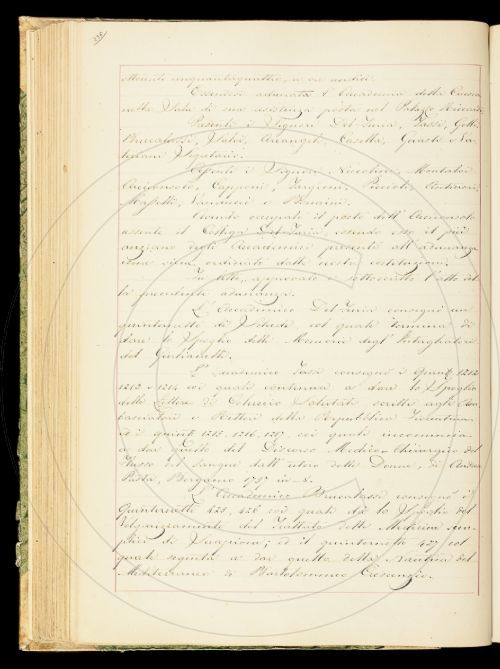 cinquantaquattro, a ore undici.
Essendosi adunata l'Accademia della Crusca
nella Sala di sua residenza posta nel Palazzo Riccardi
Presenti i Signori Del Furia,
Arcangeli, Casella, Guasti e
Segretario.
Assenti i Signori Niccolini, Montalvi
Arciconsolo, Capponi, Targioni,
e
Avendo occupato il posto dell'Arciconsolo
assente il Collega Del Furia, essendo esso il più
anziano degli Accademici presenti all'adunanza
come viene ordinato dalle nostre costituzioni.
Fu letto, approvato e sottoscritto l'atto del
la precedente adunanza.
L'Accademico Del Furia consegnò un
quinternetto di Schede col quale termina di
dare lo Spoglio delle Memorie degl'Intagliatori
del
L'Accademico consegnò i Quint. 1212
1213 e 1214 coi quali continua a dare lo Spoglio
delle Lettere di Coluccio Salutati scritte agli Am
basciatori e Rettori della Repubblica Fiorentina,
ed i quint. 1215, 1216, coi quali incomincia
a dar quello del Discorso Medico-Chirurgico del
Flusso del sangue dall'utero delle Donne, di Andrea
Pasta, Bergamo 1757 in 8.
L'Accademico Brucalassi consegnò i
Quinternetti 425, 426 coi quali dà lo Spoglio del
Volgarizzamento del Trattato delle Medicine sem
plici di Serapione; ed il quinternetto 427 col
quale seguita a dar quello della Nautica del
Mediterraneo di Bartolommeo Crescenzio.